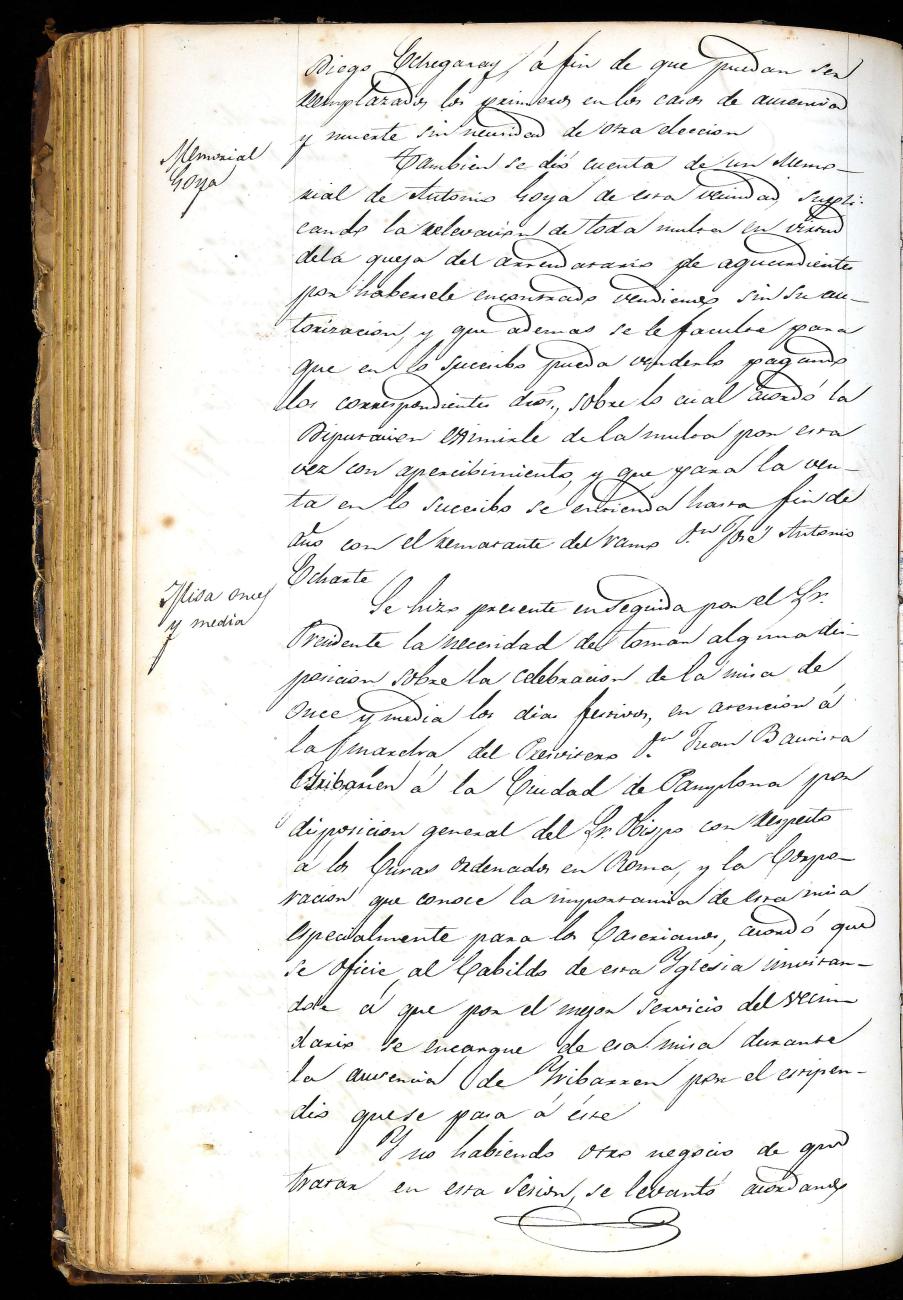 Diego Echegaray, á fin de que puedan ser
reemplazados los primeros en los casos de ausencia
y muerte sin necesidad de otra eleccion
Memorial
Goya
Tambien se dió cuenta de un Memo-
rial de Antonio Goya de esta vecindad, supli-
cando la relevacion de toda multa en virtud
dela queja del arrendatario de aguardientes
por habersele encontrado vendiendo sin su au-
torizacion, y que ademas se le faculte para
que en lo sucesibo pueda venderlo pagando
los correspondientes dros., sobre lo cual acordó la
Diputacion eximirle de la multa por esta
vez con apercibimiento, y que para la ven-
ta en lo sucesibo se entienda hasta fin de
año con el rematante del ramo Dn. José Antonio
Echarte
Misa once
y media
Se hizo presente enseguida por el Sr.
Presidente la necesidad de tomar alguna dis-
posicion sobre la celebracion de la misa de
once y media los dias festivos, en atencion á
la marcha del Presvitero Dn. Juan Bautista
Yribarren á la Ciudad de Pamplona por
disposicion general del Sr. Obispo con respecto
á los Curas ordenados en Roma, y la Corpo-
racion que conoce la importancia de esta misa
especialmente para los Caserianos, acordó que
se oficie al Cabildo de esta Yglesia imvitan-
dole á que por el mejor servicio del vecin
dario se encargue de esa misa durante
la ausencia de Yribarren por el estipen-
dio que se paga á éste
Y no habiendo otro negocio de que
tratar en esta Sesion, se levantó acordando